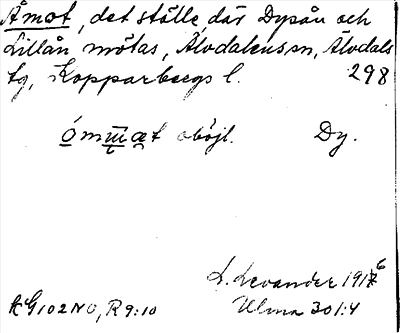 Åmot, det ställe, där Dysån och
Lillån mötas, Älvdalens sn, Älvdals
tg, Kopparbergs l. 298
Dy.
oböjl.
L. Levander 1916
AG102NO, R9:10 Ulma 301:4